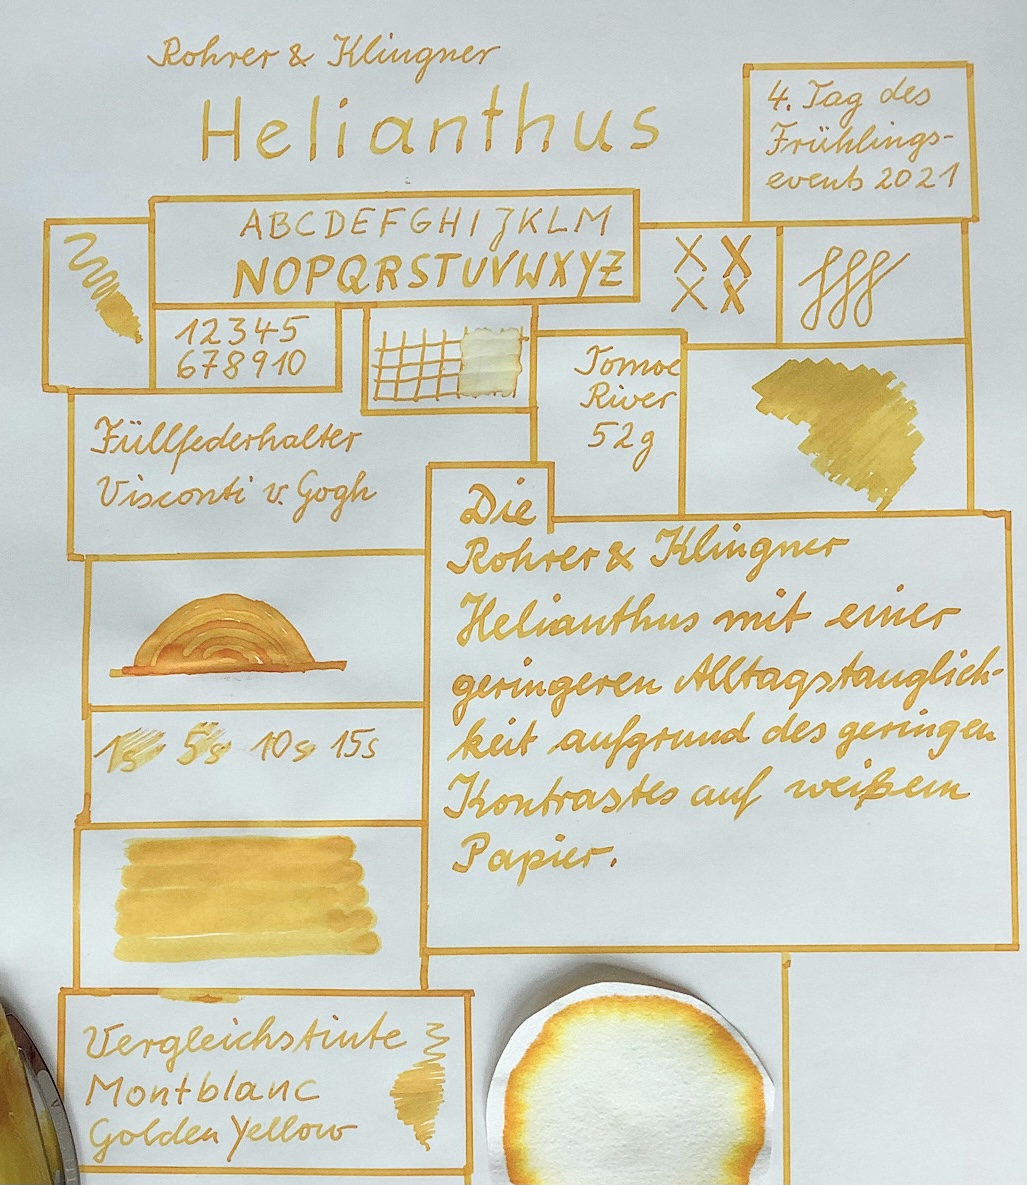 Rohrer & Klingner
Helianthus
4. Tag des
Frühlings-
events 2021
ABCDEFGHIJKLM
NOPQRSTUVWXYZ
12345
678910
Tomoe
River
52g
Füllfederhalter
Visconti v. Gogh
Die
Rohrer & Klingner
Helianthus mit einer
geringeren Alltagstauglich-
keit aufgrund des geringen
Kontrastes auf weißem
Papier.
1s 5s 10s 15s
Vergleichstinte
Montblanc
Golden Yellow